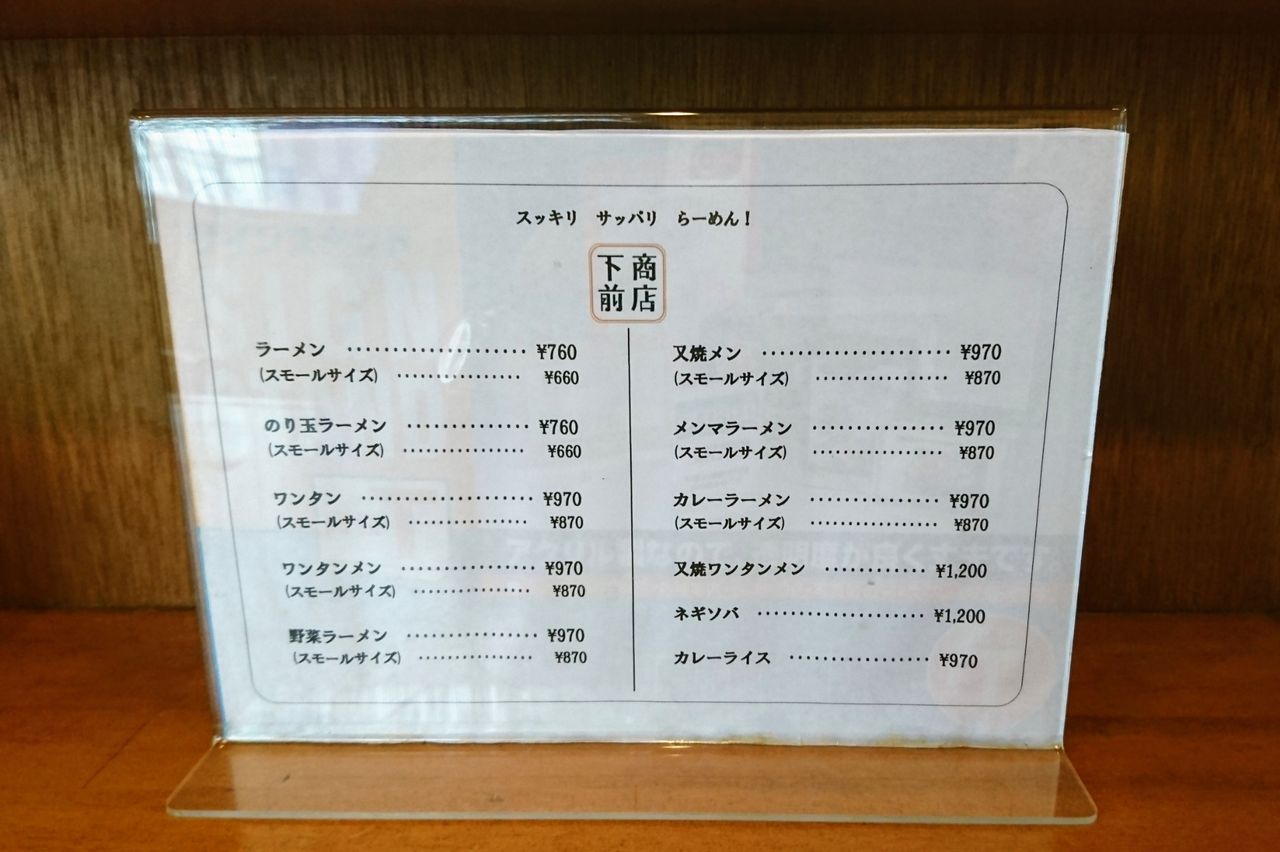 スッキリ サッパリ らーめん！
下商
前店
ラーメン ････････････････････ ¥760
(スモールサイズ) ･･････････････ ¥660
のり玉ラーメン ･･････････････ ¥760
(スモールサイズ) ･･････････････ ¥660
ワンタン ････････････････････ ¥970
(スモールサイズ) ･･････････････ ¥870
ワンタンメン ････････････････ ¥970
(スモールサイズ) ･･････････････ ¥870
野菜ラーメン ････････････････ ¥970
(スモールサイズ) ･･････････････ ¥870
叉焼メン ････････････････････ ¥970
(スモールサイズ) ･･････････････ ¥870
メンマラーメン ･･････････････ ¥970
(スモールサイズ) ･･････････････ ¥870
カレーラーメン ･･････････････ ¥970
(スモールサイズ) ･･････････････ ¥870
叉焼ワンタンメン ････････････ ¥1,200
ネギソバ ････････････････････ ¥1,200
カレーライス ････････････････ ¥970